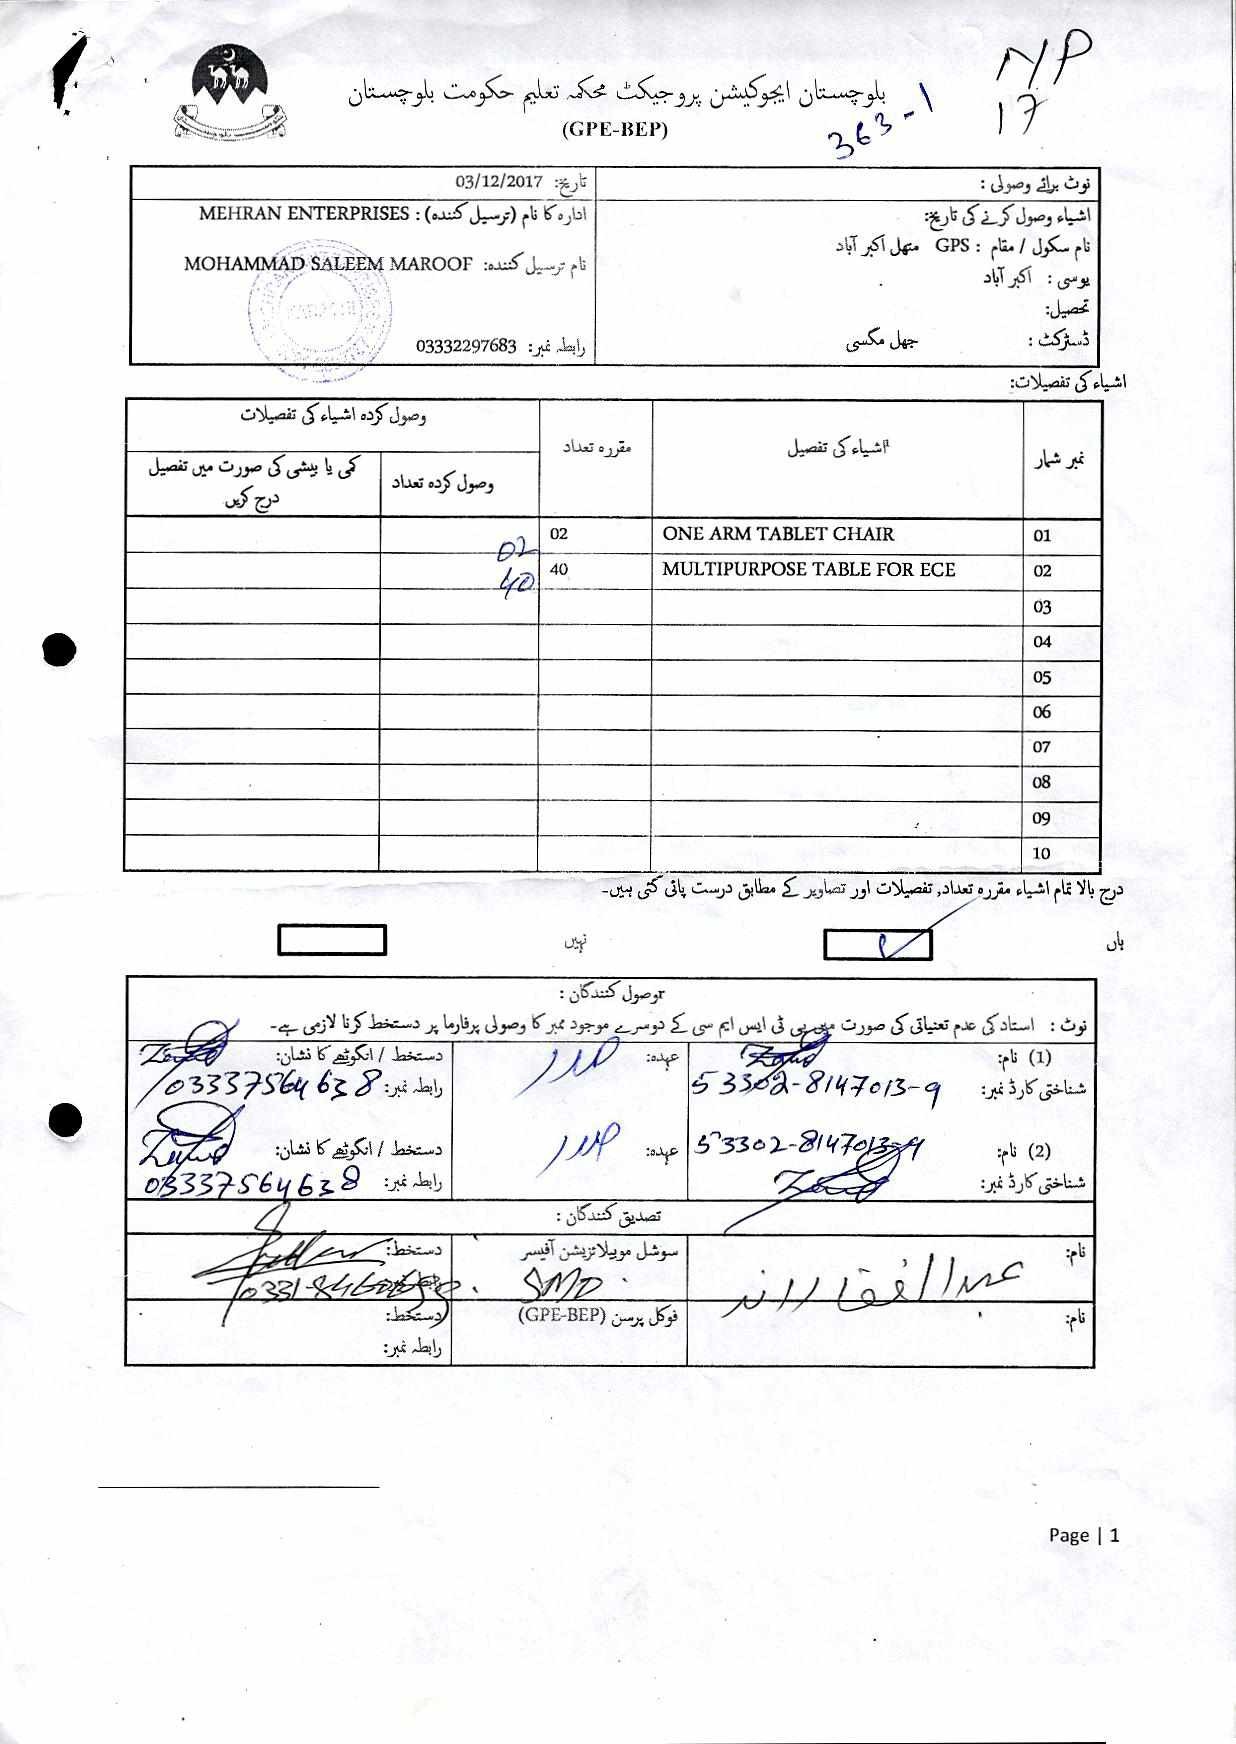 N/P
17
363-1
بلوچستان ایجوکیشن پروجیکٹ محکمہ تعلیم حکومت بلوچستان
(GPE-BEP)
نوٹ برائے وصولی :
تاریخ: 03/12/2017
اشیاء وصول کرنے کی تاریخ:
ادارہ کا نام (ترسیل کنندہ) : MEHRAN ENTERPRISES
نام سکول / مقام : GPS مٹھل اکبر آباد
نام ترسیل کنندہ: MOHAMMAD SALEEM MAROOF
یوسی : اکبر آباد
تحصیل:
ڈسٹرکٹ : جھل مگسی
رابطہ نمبر: 03332297683
اشیاء کی تفصیلات:
نمبر شمار اشیاء کی تفصیل مقررہ تعداد وصول کردہ اشیاء کی تفصیلات
وصول کردہ تعداد کمی یا بیشی کی صورت میں تفصیل
درج کریں
01 ONE ARM TABLET CHAIR 02 02
02 MULTIPURPOSE TABLE FOR ECE 40 40
03
04
05
06
07
08
09
10
درج بالا تمام اشیاء مقررہ تعداد, تفصیلات اور تصاویر کے مطابق درست پائی گئی ہیں۔
ہاں نہیں
وصول کنندگان :
نوٹ : استاد کی عدم تعیناتی کی صورت میں پی ٹی ایس ایم سی کے دوسرے موجود ممبر کا وصولی پرفارما پر دستخط کرنا لازمی ہے۔
(1) نام: عہدہ: صدر دستخط / انگوٹھے کا نشان:
شناختی کارڈ نمبر: 53302-8147013-9 رابطہ نمبر: 03337564638
(2) نام: 53302-8147013-9 عہدہ: صدر دستخط / انگوٹھے کا نشان:
شناختی کارڈ نمبر: رابطہ نمبر: 03337564638
تصدیق کنندگان :
نام: سوشل موبیلائزیشن آفیسر دستخط:
SMO
نام: فوکل پرسن (GPE-BEP) دستخط:
رابطہ نمبر:
Page | 1